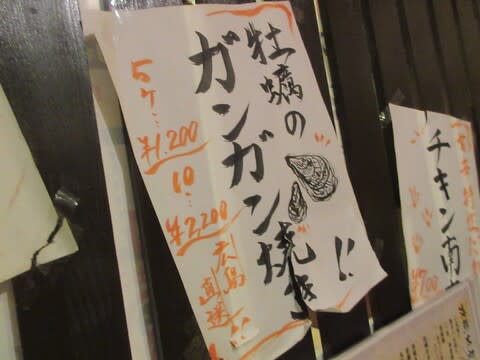 牡蠣の
ガンガン焼き!!
5ケ…¥1,200
10…¥2,200
広島直送!!
チキン南
¥700